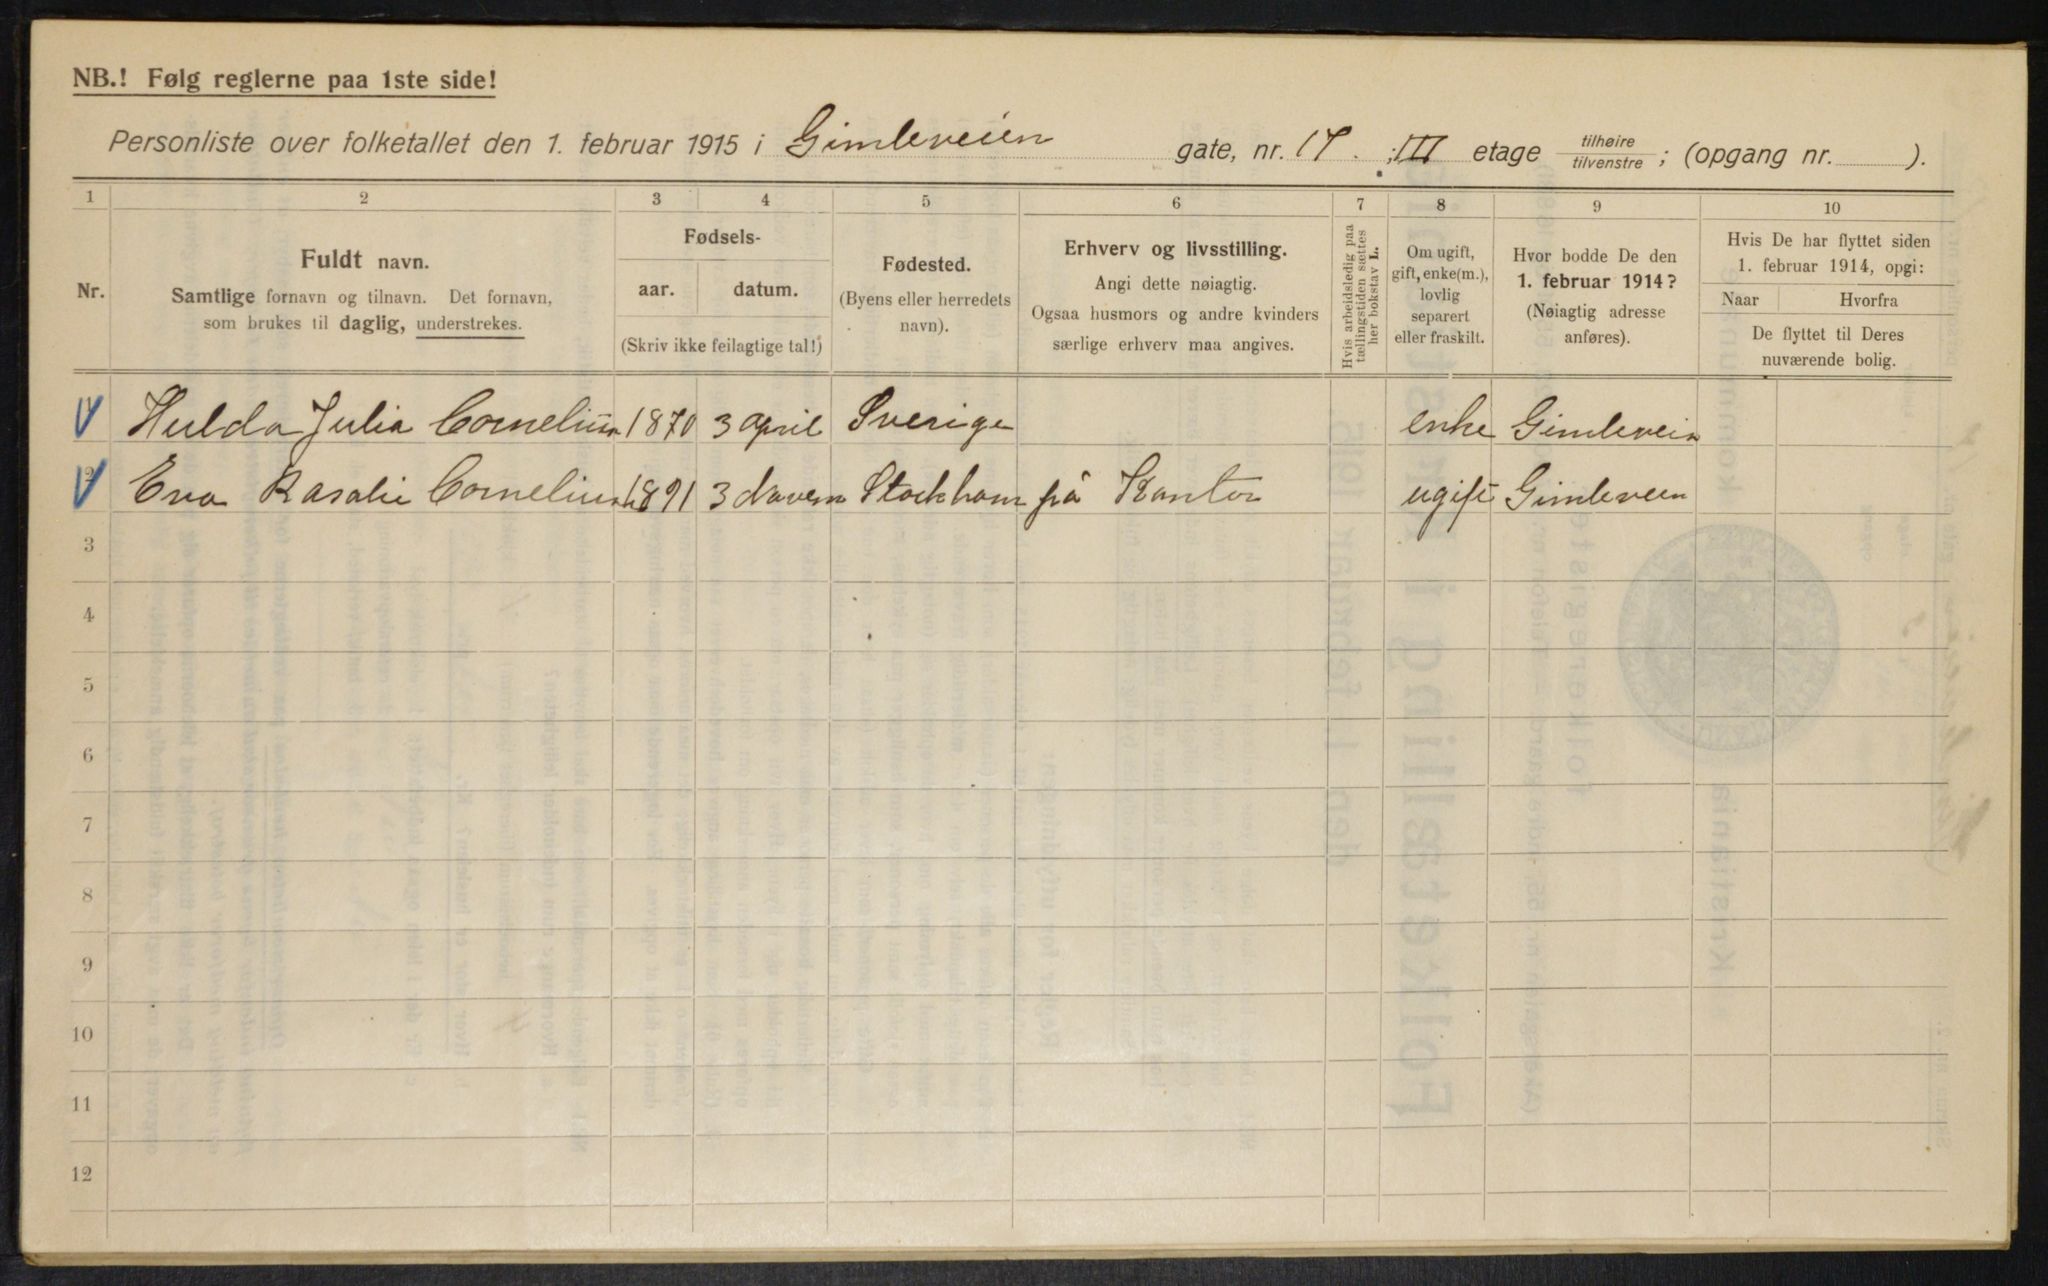 NB.! Følg reglerne paa 1ste side!
Personliste over folketallet den 1. februar 1915 i Gimleveien gate, nr. 17. ; III etage tilhøire / tilvenstre ; (opgang nr. ).
1 2 3 4 5 6 7 8 9 10
Nr.
Fuldt navn.
Samtlige fornavn og tilnavn. Det fornavn,
som brukes til daglig, understrekes.
Fødsels-
aar. datum.
(Skriv ikke feilagtige tal!)
Fødested.
(Byens eller herredets
navn).
Erhverv og livsstilling.
Angi dette nøiagtig.
Ogsaa husmors og andre kvinders
særlige erhverv maa angives.
Hvis arbeidsledig paa
tællingstiden sættes
her bokstav L.
Om ugift,
gift, enke(m.),
lovlig
separert
eller fraskilt.
Hvor bodde De den
1. februar 1914?
(Nøiagtig adresse
anføres).
Hvis De har flyttet siden
1. februar 1914, opgi:
Naar Hvorfra
De flyttet til Deres
nuværende bolig.
1 Hulda Julia Cornelius 1870 3 april Sverige enke Gimleveien
2 Eva Rasalie Cornelius 1891 3 Stockholm på Kantor ugift Gimleveien
3
4
5
6
7
8
9
10
11
12